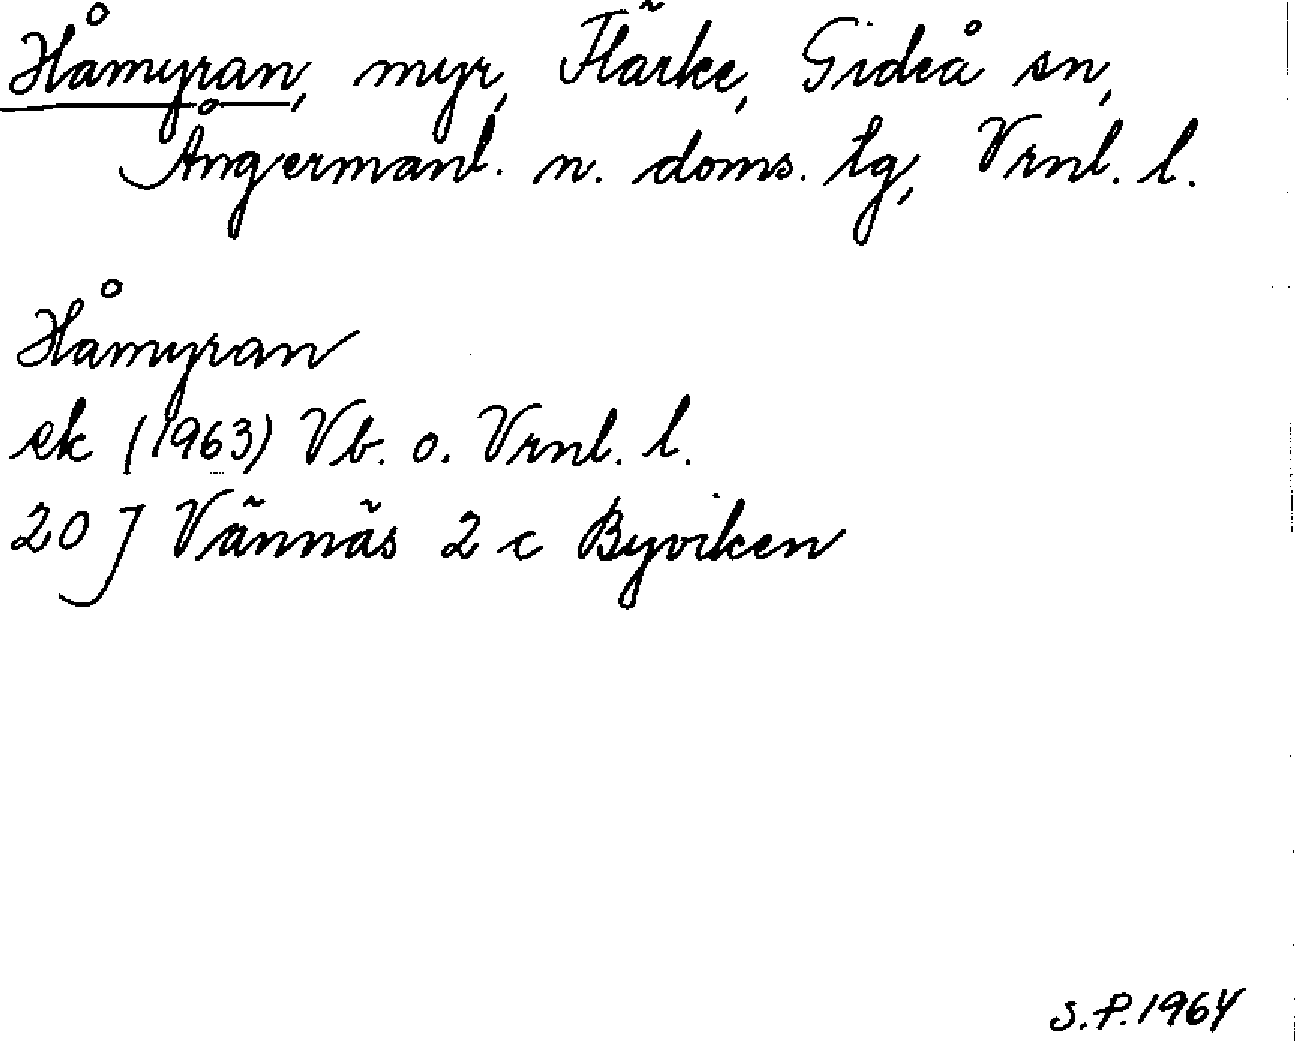 Håmyran, myr, Flärke, Gideå sn,
Ångermanl. n. doms. tg, Vrnl. l.
Håmyran
ek (1963) Vb. o. Vrnl. l.
20 J Vännäs 2 c Byviken
S.P. 1964